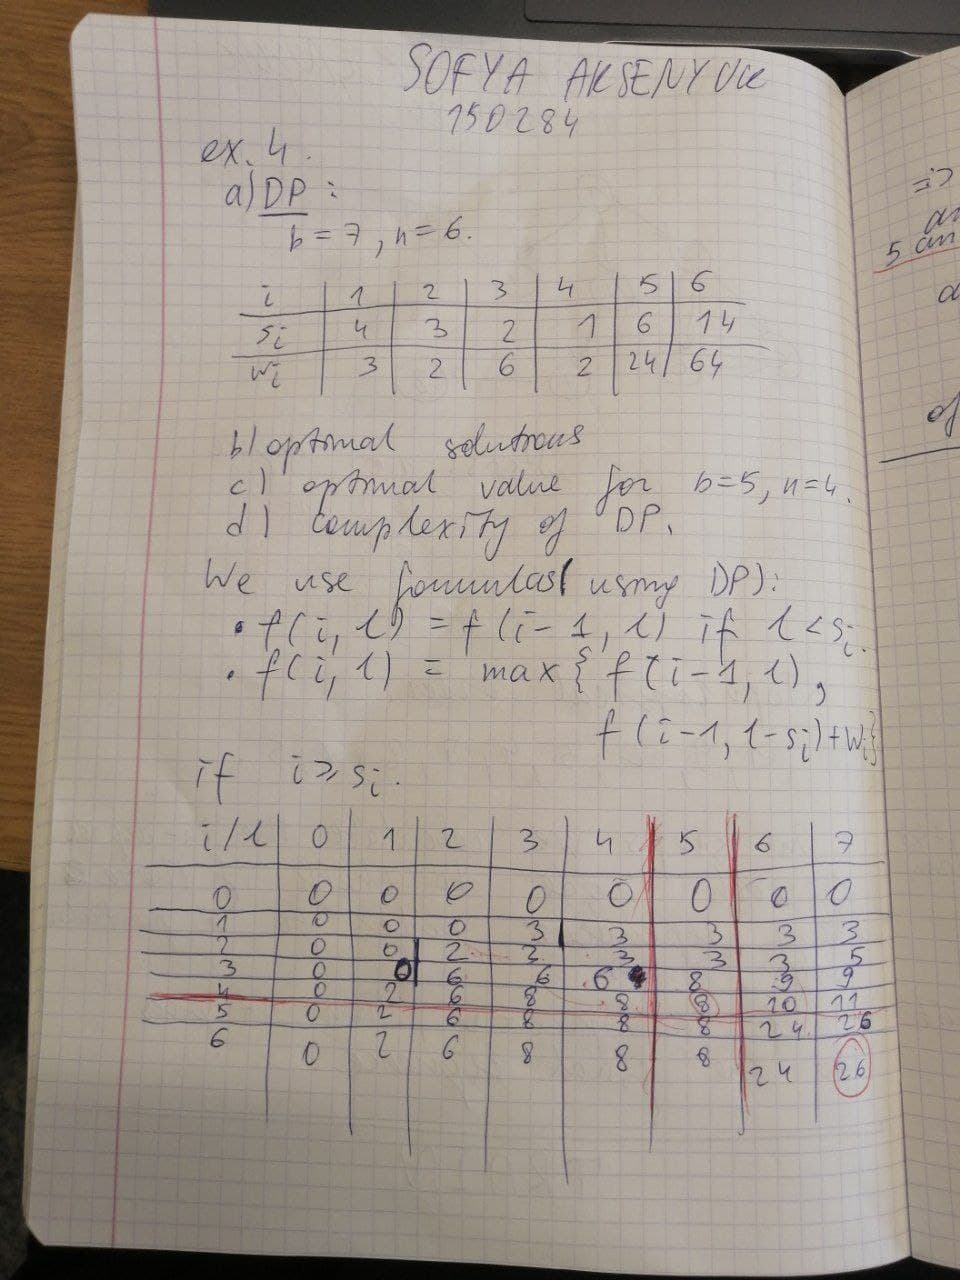 SOFYA AKSENYUK
150284
ex. 4.
a) DP:
b = 7, n = 6.
i 1 2 3 4 5 6
si 4 3 2 1 6 14
wi 3 2 6 2 24 64
b) optimal solutions
c) optimal value for b=5, n=4.
d) complexity of DP.
We use formulas (using DP):
• f(i, l) = f(i-1, l) if l < si.
• f(i, l) = max{ f(i-1, l),
f(i-1, l-si)+wi}
if i ≥ si.
i/l 0 1 2 3 4 5 6 7
0 0 0 0 0 0 0 0 0
1 0 0 0 3 3 3 3 3
2 0 0 2 2 3 3 3 5
3 0 0 6 6 6 8 9 9
4 0 2 6 8 8 8 10 11
5 0 2 6 8 8 8 24 26
6 0 2 6 8 8 8 24 26
=>
an
5 an
of